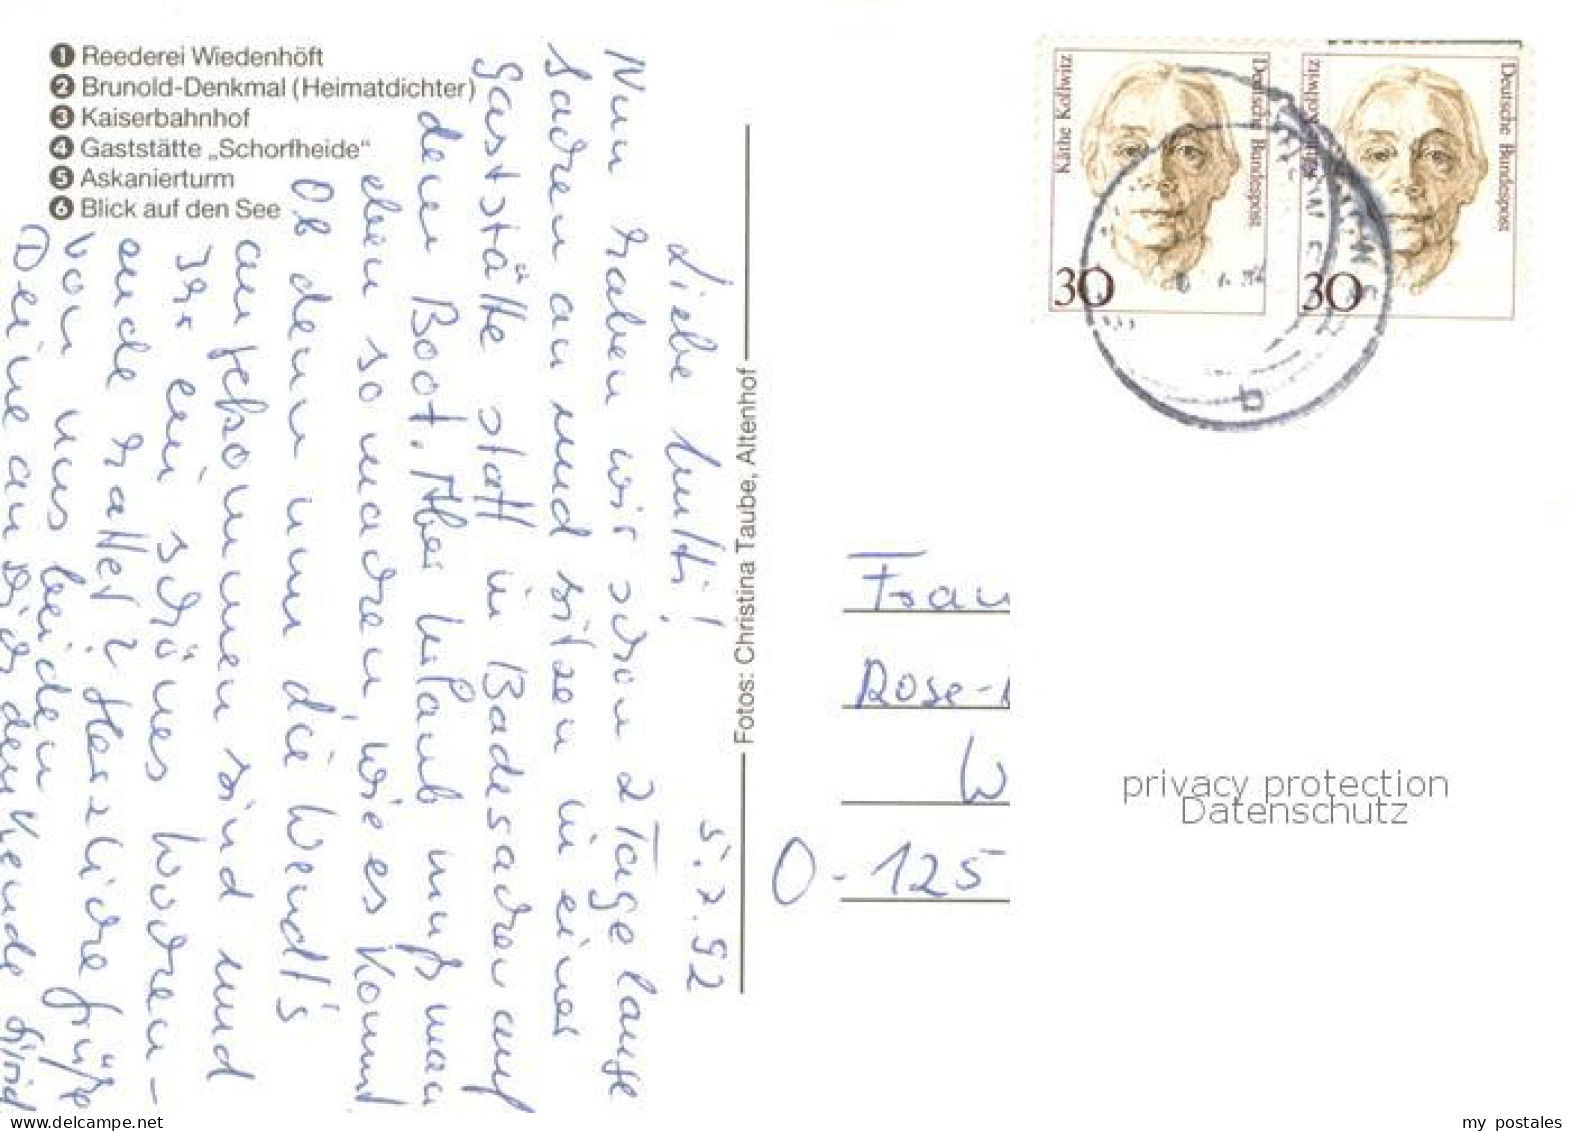 ❶ Reederei Wiedenhöft
❷ Brunold-Denkmal (Heimatdichter)
❸ Kaiserbahnhof
❹ Gaststätte „Schorfheide“
❺ Askanierturm
❻ Blick auf den See
5.7.92
Liebe Mutti!
Nun haben wir schon 2 Tage lange
Sachen an und sitzen in einer
Gaststätte statt in Badesachen auf
dem Boot. Aber Urlaub muß man
eben so machen, wie es kommt
Ob denn nun die Wendt's
angekommen sind und
Ihr ein schönes Wochen-
ende hattet? Herzliche Grüße
von uns beiden
Deine an Dich denkende
Fotos: Christina Taube, Altenhof
Käthe Kollwitz
Deutsche Bundespost
30
Käthe Kollwitz
Deutsche Bundespost
30
Frau
Rose-
W
O-125
privacy protection
Datenschutz
my_postales